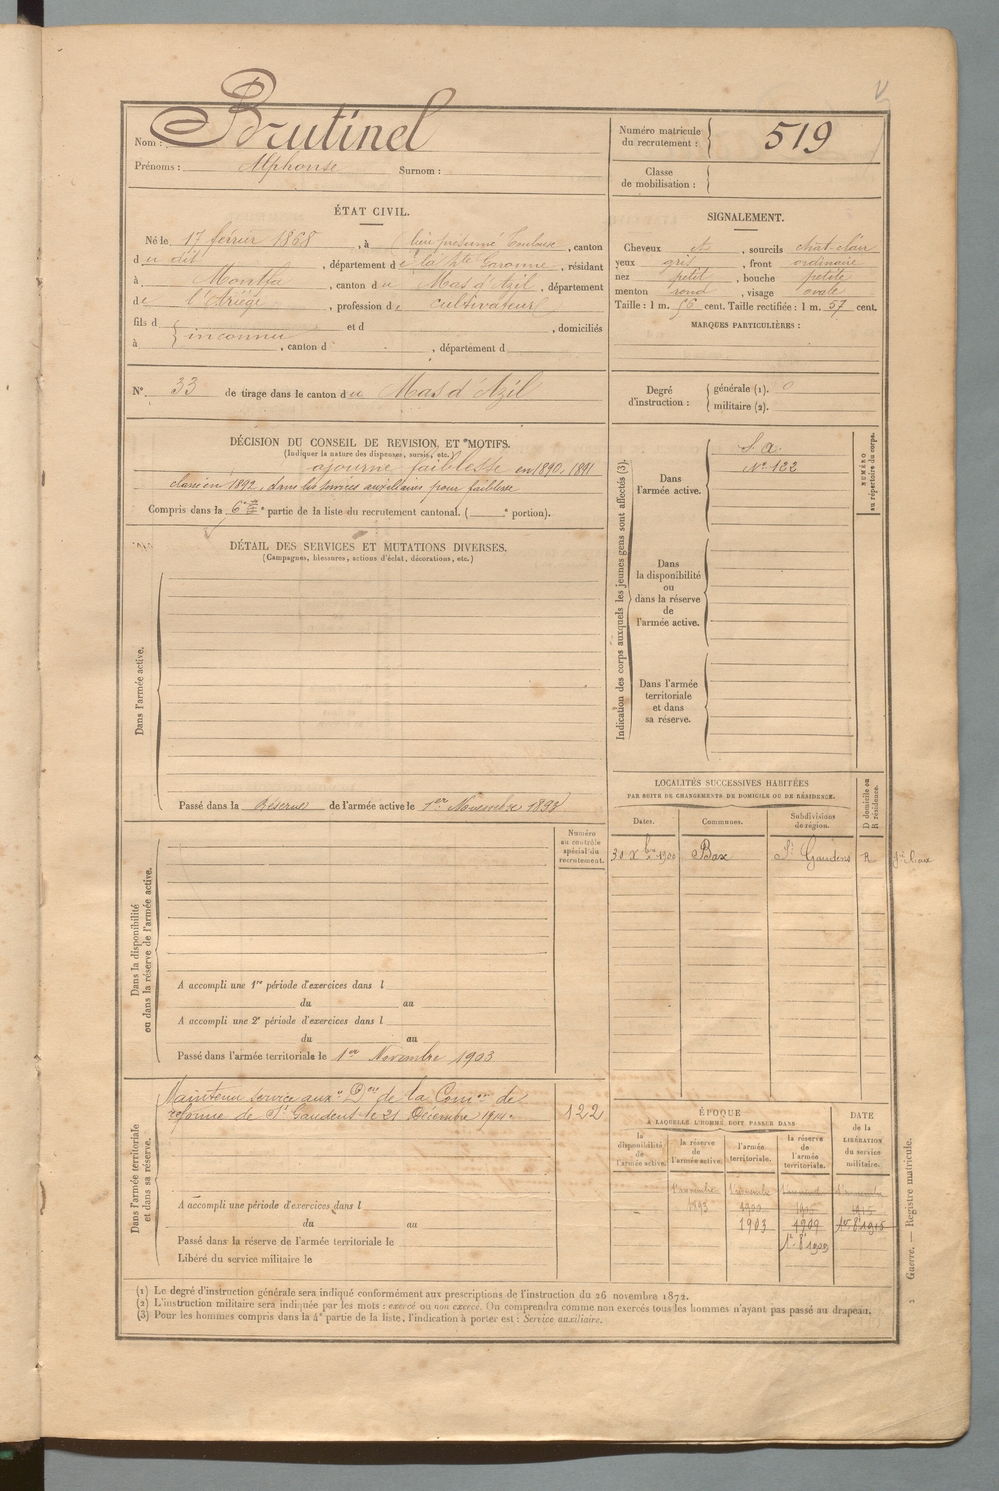 Nom : Brutinel
Prénoms : Alphonse Surnom :
ÉTAT CIVIL.
Né le 17 février 1868, à (lieu présumé Toulouse, canton
du dit, département de la Hte Garonne, résidant
à Montfa, canton du Mas d'Azil, département
de l'Ariège, profession de cultivateur
fils d inconnu et d , domiciliés
à , canton d , département d
N° 33 de tirage dans le canton du Mas d'Azil
DÉCISION DU CONSEIL DE REVISION, ET MOTIFS.
(Indiquer la nature des dispenses, sursis, etc.)
ajourné faiblesse en 1890, 1891
classé en 1892, dans les services auxiliaires pour faiblesse
Compris dans la 6e partie de la liste du recrutement cantonal. ( e portion).
DÉTAIL DES SERVICES ET MUTATIONS DIVERSES.
(Campagnes, blessures, actions d'éclat, décorations, etc.)
Dans l'armée active.
Passé dans la Réserve de l'armée active le 1er Novembre 1893
Numéro
au contrôle
spécial du
recrutement.
Dans la disponibilité
ou dans la réserve de l'armée active.
A accompli une 1re période d'exercices dans l
du au
A accompli une 2e période d'exercices dans l
du au
Passé dans l'armée territoriale le 1er Novembre 1903
Dans l'armée territoriale
et dans sa réserve.
Maintenu service auxre Don de la Comon de
réforme de St Gaudens le 21 Décembre 1914.
122
A accompli une période d'exercices dans l
du au
Passé dans la réserve de l'armée territoriale le
Libéré du service militaire le
Numéro matricule
du recrutement : 519
Classe
de mobilisation :
SIGNALEMENT.
Cheveux et, sourcils chat-clair
yeux gris, front ordinaire
nez petit, bouche petite
menton rond, visage ovale
Taille : 1 m. 56 cent. Taille rectifiée : 1 m. 57 cent.
MARQUES PARTICULIÈRES :
Degré
d'instruction :
générale (1). 0
militaire (2).
Indication des corps auxquels les jeunes gens sont affectés (3).
NUMÉRO
au répertoire du corps.
Dans
l'armée active.
S a
N° 122
Dans
la disponibilité
ou
dans la réserve
de
l'armée active.
Dans l'armée
territoriale
et dans
sa réserve.
LOCALITÉS SUCCESSIVES HABITÉES
PAR SUITE DE CHANGEMENTS DE DOMICILE OU DE RÉSIDENCE.
Dates. Communes. Subdivisions
de région.
D domicile ou
R résidence.
31 Xbre 1900 Bax St Gaudens R
ÉPOQUE
À LAQUELLE L'HOMME DOIT PASSER DANS
la
disponibilité
de
l'armée active.
la réserve
de
l'armée active.
l'armée
territoriale.
la réserve
de
l'armée
territoriale.
DATE
de la
LIBÉRATION
du service
militaire.
1 novembre 1 novembre 1 novembre 1 novembre
1893 1900 1906 1915
1903 1909 1er 8e 1915
1er 8e 1909
Guerre. — Registre matricule.
(1) Le degré d'instruction générale sera indiqué conformément aux prescriptions de l'instruction du 26 novembre 1872.
(2) L'instruction militaire sera indiquée par les mots : exercé ou non exercé. On comprendra comme non exercés tous les hommes n'ayant pas passé au drapeau.
(3) Pour les hommes compris dans la 4e partie de la liste, l'indication à porter est : Service auxiliaire.